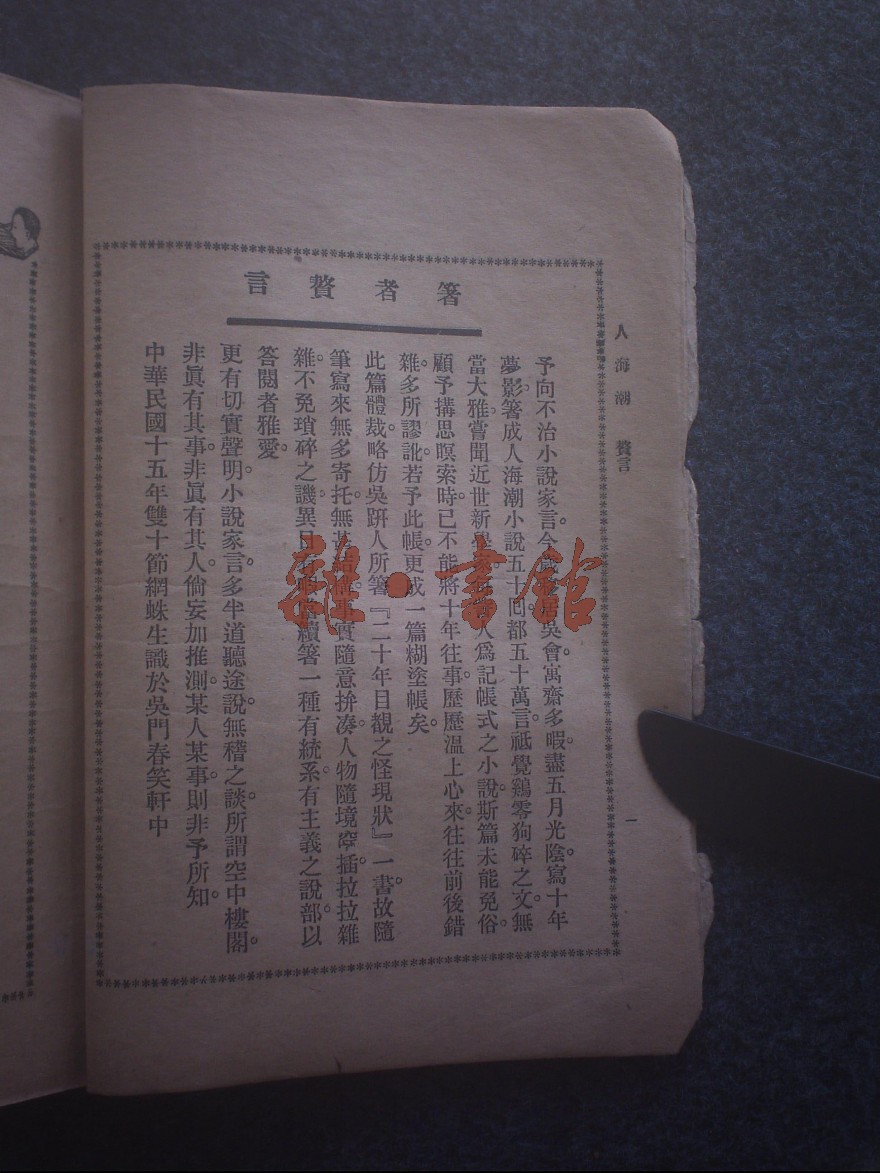 人海潮　贅言
一
箸者贅言
予向不治小說家言。今歲吳會寓齋多暇。盡五月光陰。寫十年
夢影。箸成人海潮小說五十回。都五十萬言。祗覺鷄零狗碎之文。無
當大雅。嘗聞近世新學人爲記帳式之小說。斯篇未能免俗。
顧予搆思暝索時。已不能將十年往事。歷歷溫上心來。往往前後錯
雜。多所謬訛。若予此帳。更成一篇糊塗帳矣。
此篇體裁。略仿吳趼人所箸『二十年目覩之怪現狀』一書。故隨
筆寫來。無多寄托。無甚實。隨意拚凑。人物隨境穿插。拉拉雜
雜。不免瑣碎之譏。異日續箸一種有統系有主義之說部。以
答閱者雅愛。
更有切實聲明。小說家言。多半道聽途說。無稽之談。所謂空中樓閣。
非眞有其事。非眞有其人。倘妄加推測。某人某事。則非予所知。
中華民國十五年雙十節網蛛生識於吳門春笑軒中
雜·書館